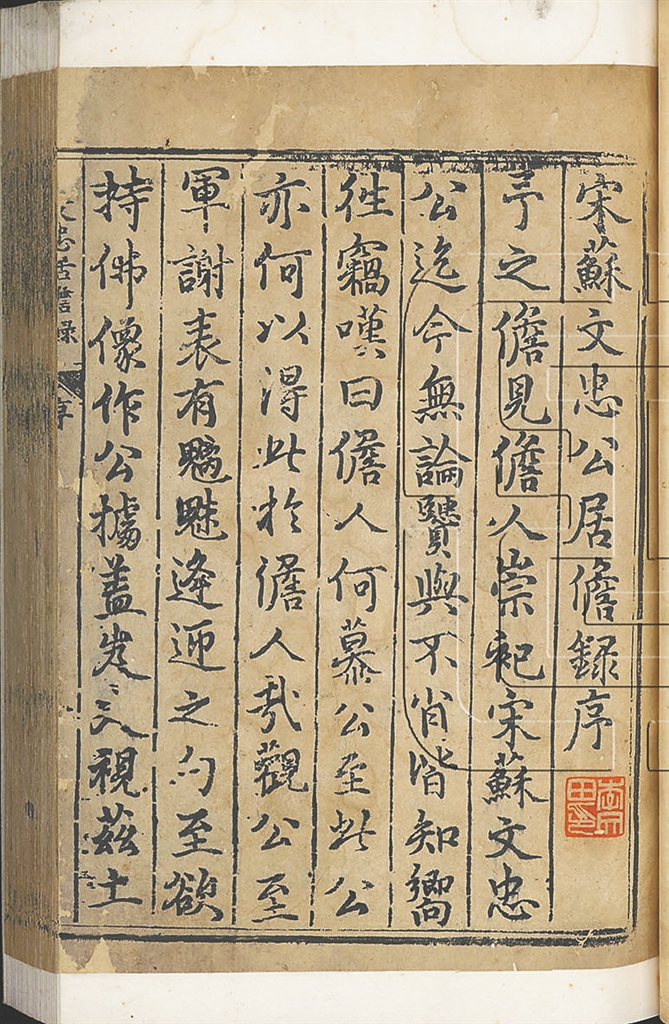 宋蘇文忠公居儋録序
予之儋見儋人崇祀宋蘇文忠
公迄今無論賢與不肖皆知嚮
徃竊嘆曰儋人何慕公至此公
亦何以淂此扵儋人哉觀公至
軍謝表有魑魅逄迎之句至欲
持佛像作公據盖岌〻乂視茲土